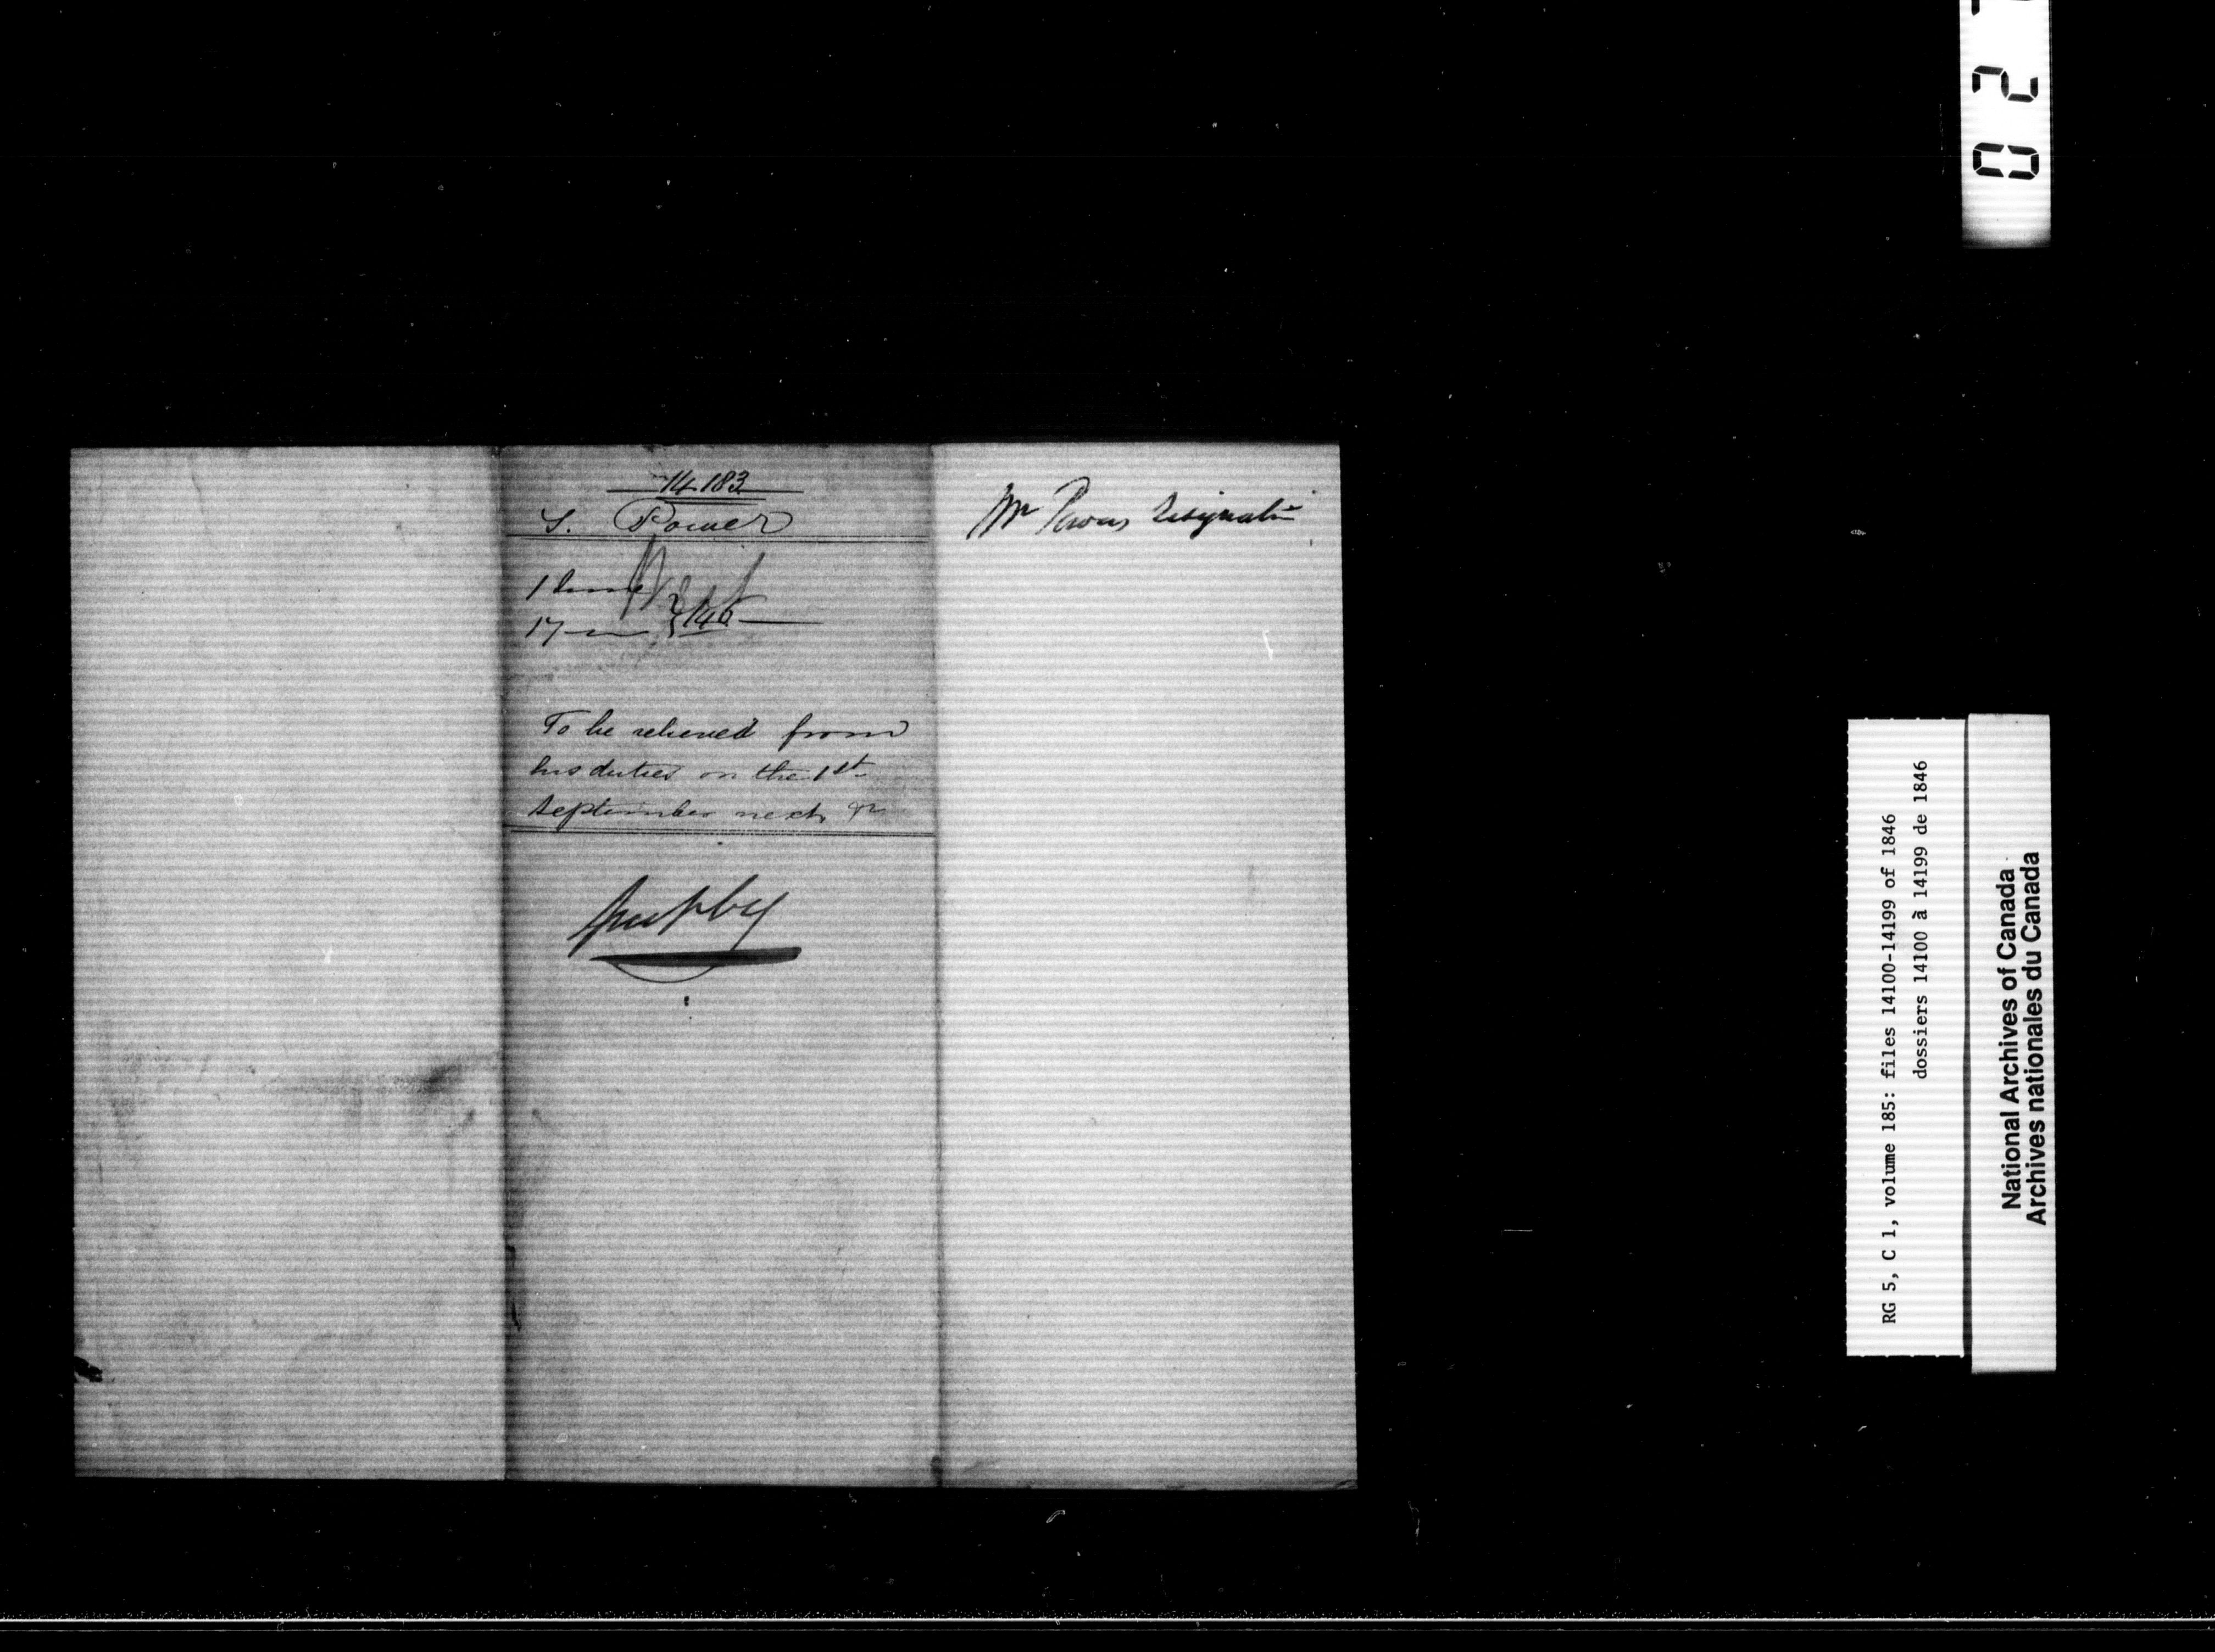 14.183
S. Power
1 June
17 — } /46
To be relieved from
his duties on the 1st
September next &c
Mr Powers Resignatn
RG 5, C 1, volume 185: files 14100-14199 of 1846
dossiers 14100 à 14199 de 1846
National Archives of Canada
Archives nationales du Canada
0 2